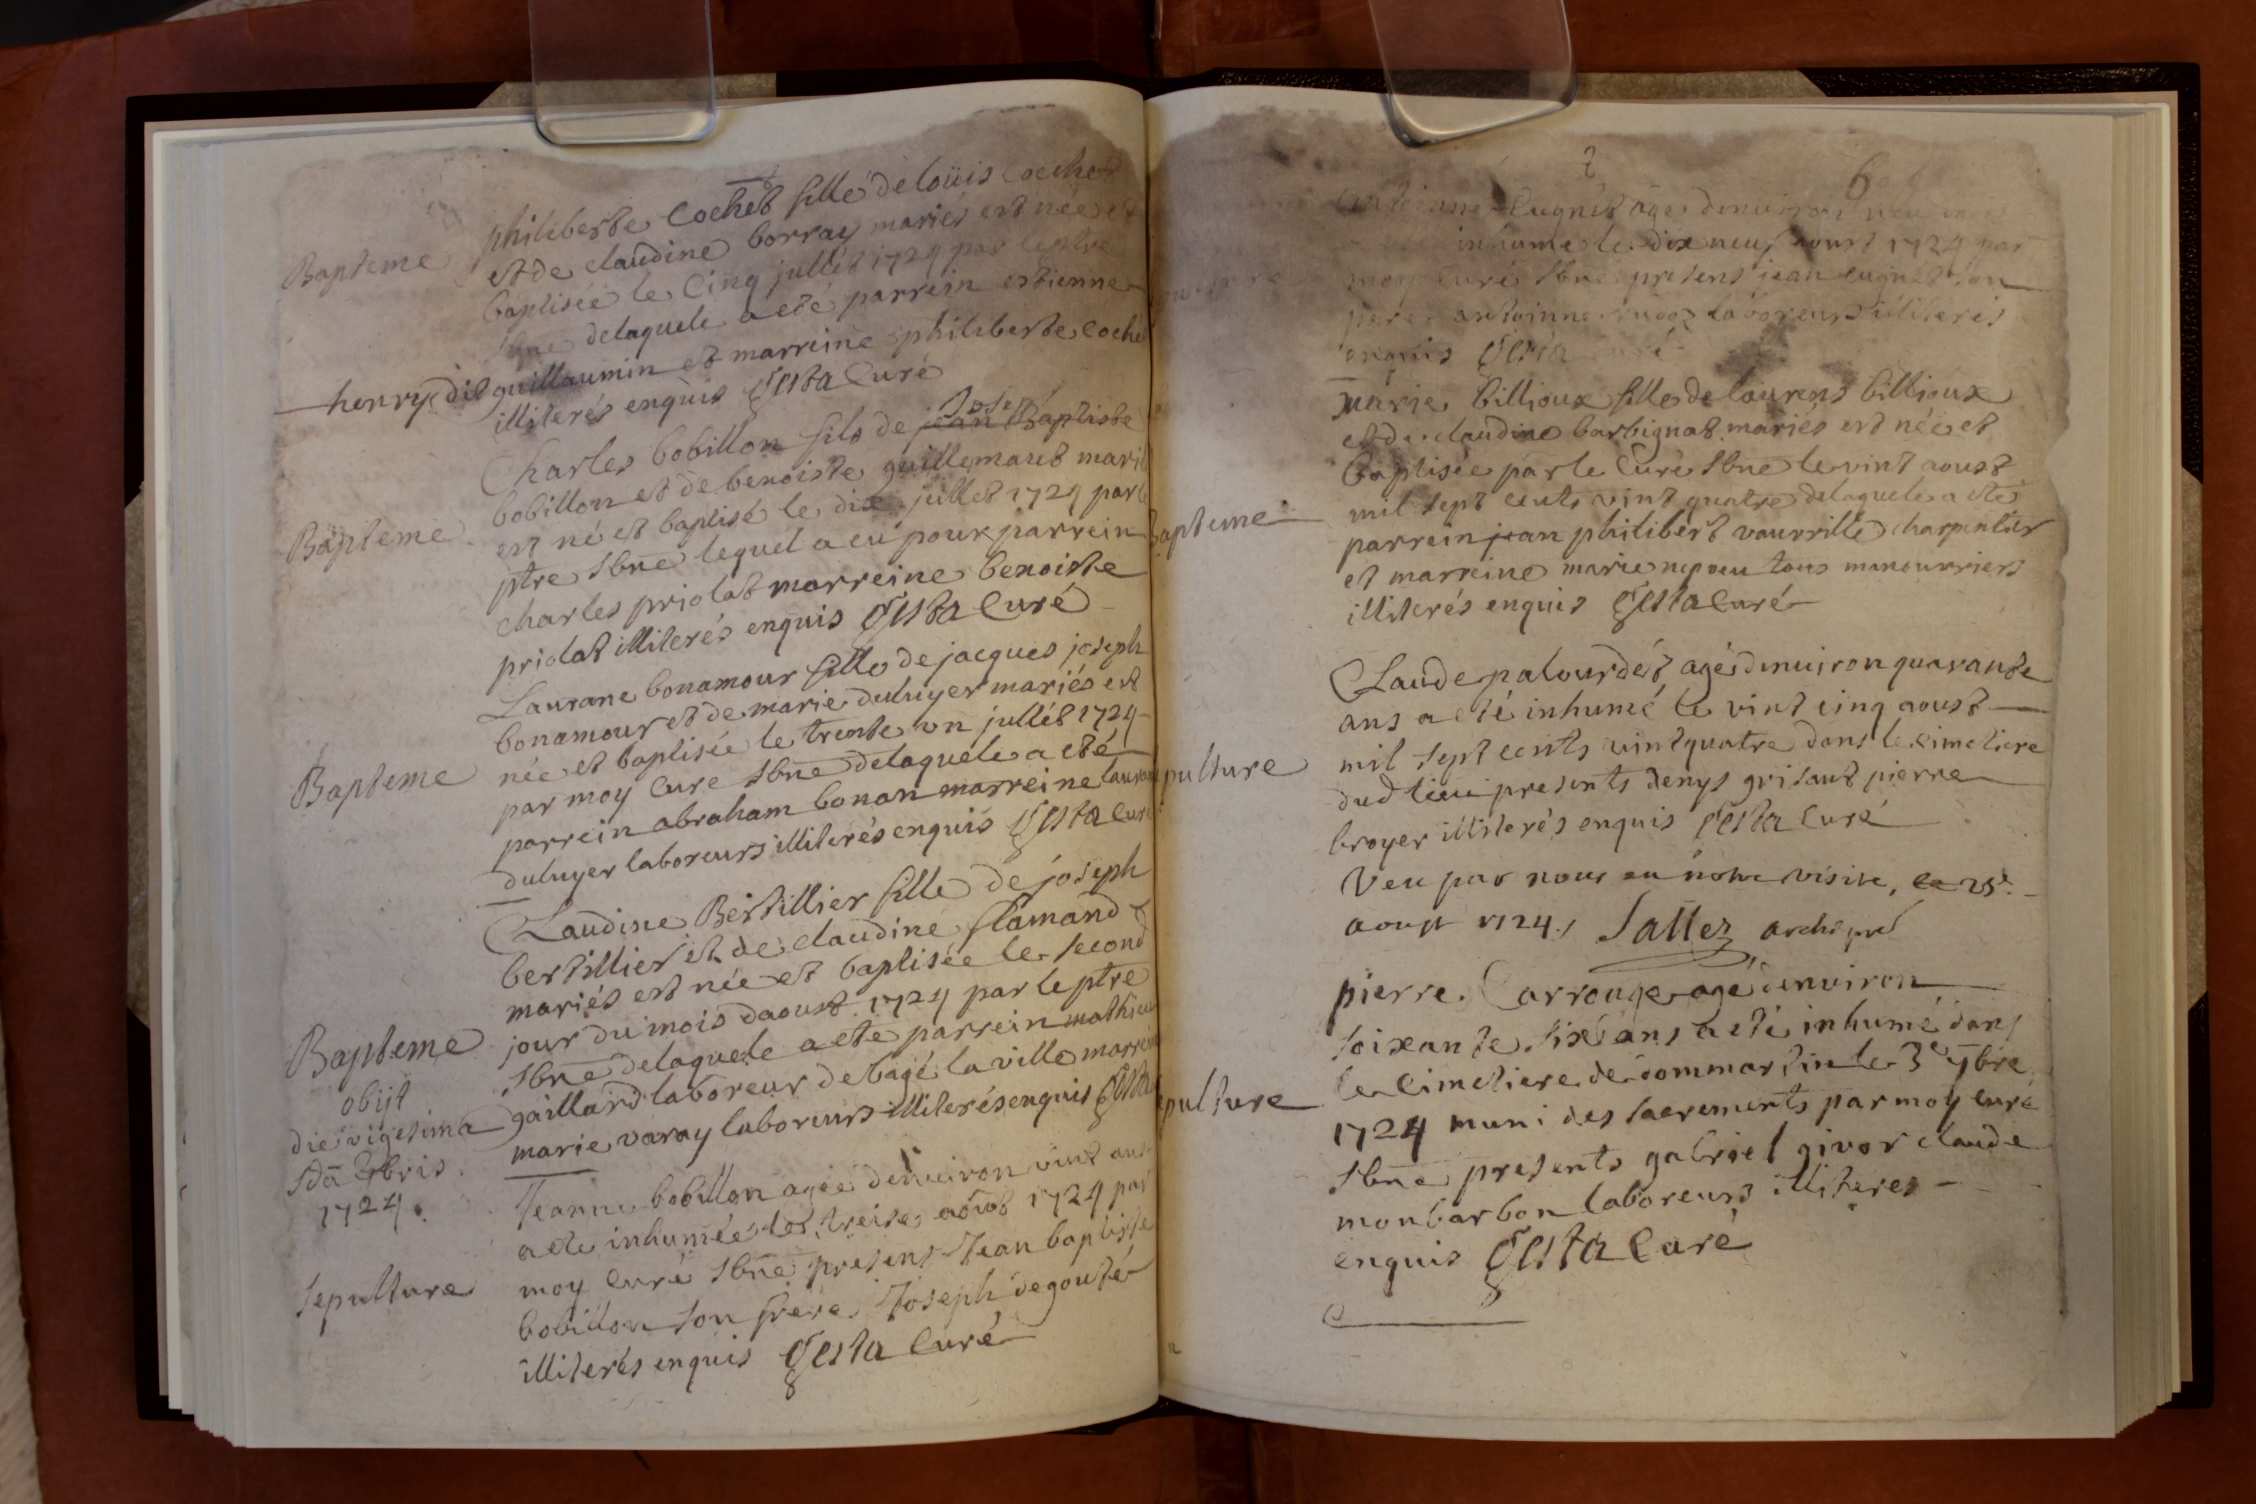 Bapteme
philiberte Cochet fille de loüis Cochet
et de claudine borray mariés est née et
baptisée le Cinq jullet 1724 par le ptre
sbne delaquele a eté parrein estienne
henry dit guillaumin et marreine philiberte coche
illiterés enquis Gesta Curé
Bapteme
Charles bobillon fils de jean Baptiste
Josep
bobillon et de benoiste guillemaut marié
est né et baptisé le dix jullet 1724 par le
ptre sbne lequel a eu pour parrein
charles priolat marreine benoiste
priolat illiterés enquis Gesta Curé
Bapteme
Laurane bonamour fille de jacques joseph
bonamour et de marie duluyer mariés est
née et baptisée le trente un jullét 1724
par moy Cure sbne delaquele a eté
parrein abraham bonan marreine lauran
duluyer laboreurs illiterés enquis Gesta Curé
Bapteme
Claudine Bertillier fille de joseph
bertillier et de claudine flamand
mariés est née et baptisée le second
jour du mois daoust 1724 par le ptre
sbne delaquele a ete parrein mathieu
gaillard laboreur de bagé la ville marrei
marie varay laboreurs illiterés enquis Gesta
obijt
die vigesima
sda bris
1724.
Sepulture
Jeanne bobillon agée denuiron vint ans
a ete inhumée le treise 1724 par
moy curé sbne present Jean baptiste
bobillon son frere Joseph degouté
illiterés enquis Gesta Curé
6
Cugnet agé denuiron
inhume le dix neuf aoust 1724 par
moy Curé sbne presens jean cugnet son
pere antoinne laboreurs illiterés
enquis Gesta Curé
Bapteme
marie billioux fille de laurens billioux
et de claudine barbignat mariés est née et
baptisée par le Curé sbne le vint aoust
mil sept cents vint quatre delaquele a eté
parrein jean philibert vaurrille charpentier
et marreine marie nepveu tous manouvriers
illiterés enquis Gesta Curé
pulture
Claude palourdet agé denuiron quarante
ans a eté inhumé le vint cinq aoust
mil sept cents vint quatre dans le cimetiere
dud lieu presents denys grisaut pierre
broyer illiterés enquis Gesta Curé
Veu par nous en nôtre visite, ce 25e
aoust 1724. Sallez archipre
pulture
pierre Carrouge agé denviron
soixante six ans a eté inhumé dans
le cimetiere de dommartin le 3e 7bre
1724 muni des sacrements par moy curé
sbne presents gabriel givor claude
monbarbon laboreurs illiteres
enquis Gesta Curé